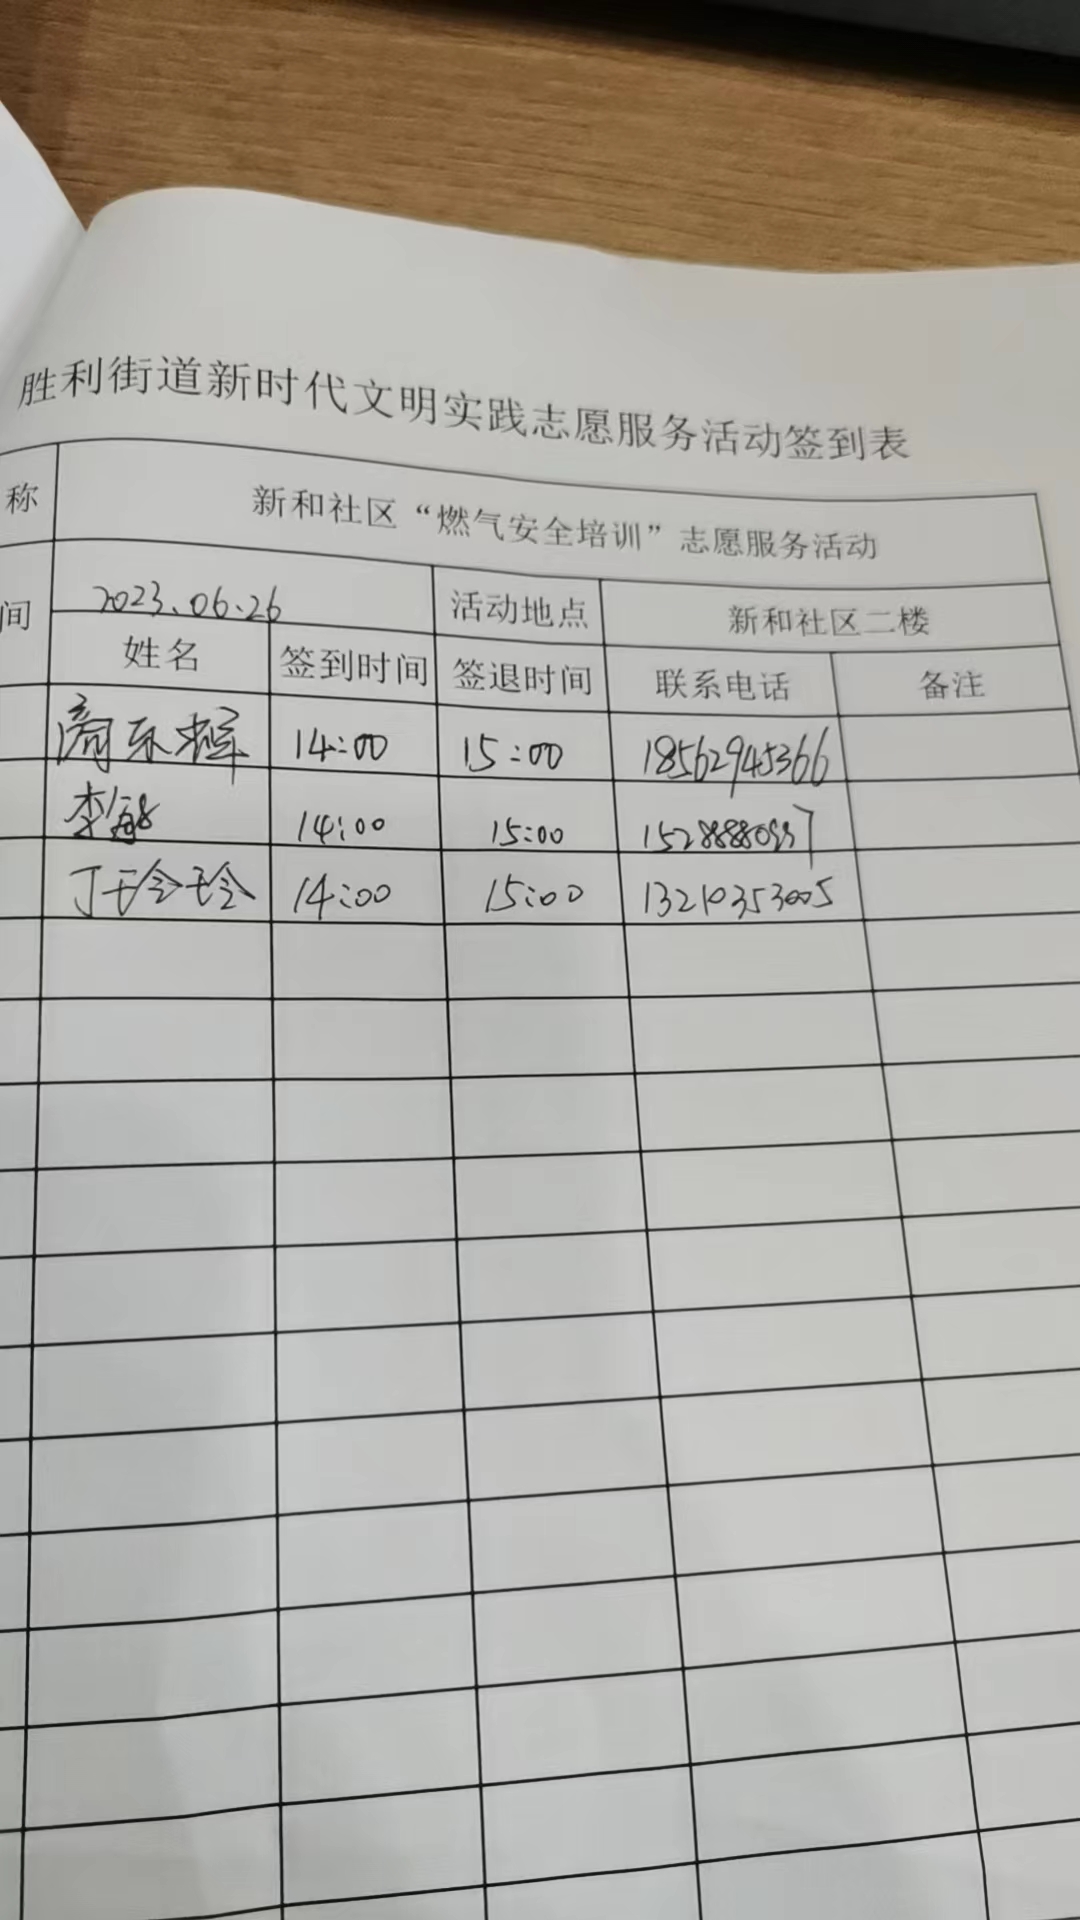 胜利街道新时代文明实践志愿服务活动签到表
称 新和社区“燃气安全培训”志愿服务活动
间 2023.06.26 活动地点 新和社区二楼
姓名 签到时间 签退时间 联系电话 备注
14:00 15:00 18562945366
李敏 14:00 15:00
丁玲玲 14:00 15:00 13210353005